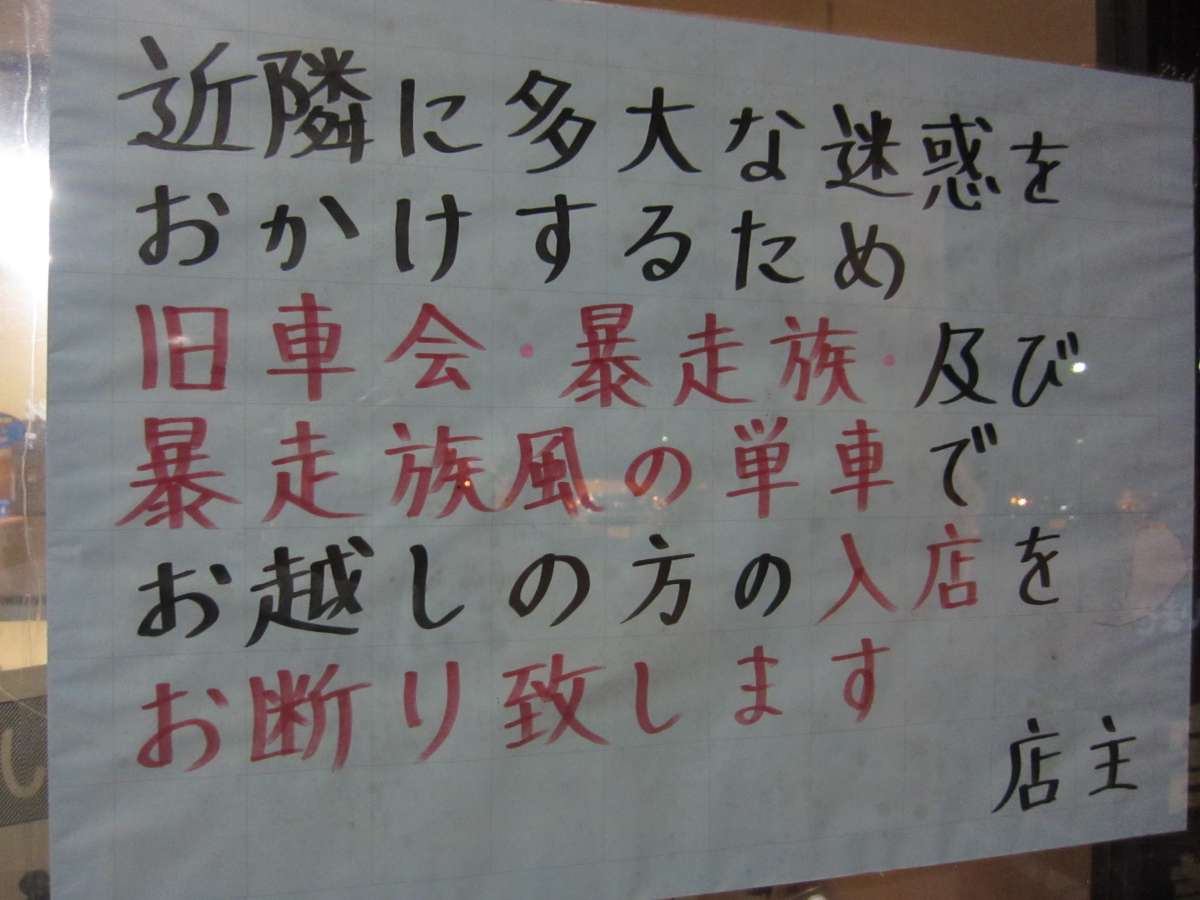 近隣に多大な迷惑を
おかけするため
旧車会・暴走族・及び
暴走族風の単車で
お越しの方の入店を
お断り致します
店主